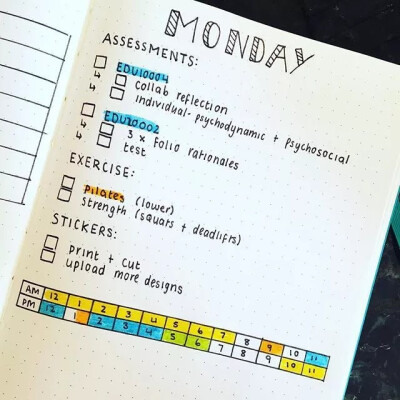 MONDAY
ASSESSMENTS:
EDU10004
↳ collab reflection
↳ individual- psychodynamic + psychosocial
EDU20002
↳ 3 x folio rationales
↳ test
EXERCISE:
pilates (lower)
strength (squats + deadlifts)
STICKERS:
print + cut
upload more designs
AM 12 1 2 3 4 5 6 7 8 9 10 11
PM 12 1 2 3 4 5 6 7 8 9 10 11